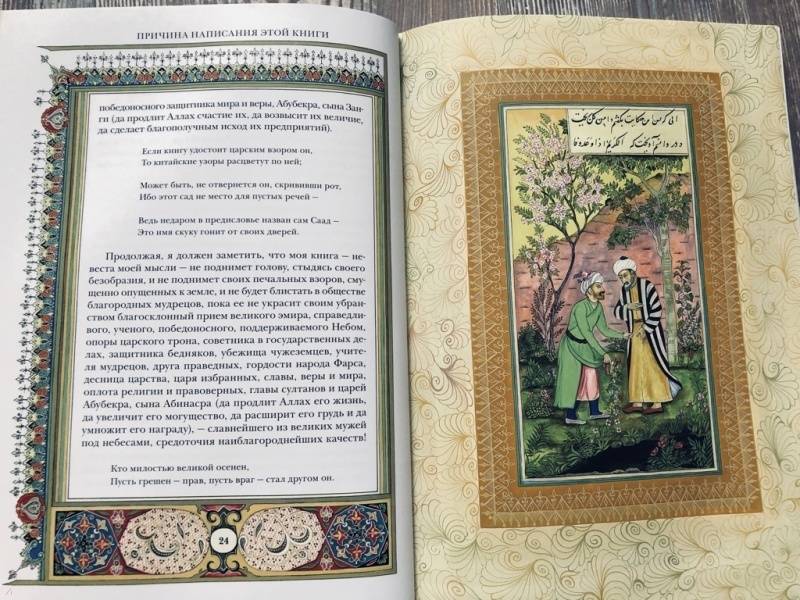 ПРИЧИНА НАПИСАНИЯ ЭТОЙ КНИГИ
победоносного защитника мира и веры, Абубекра, сына Зан-
ги (да продлит Аллах счастие их, да возвысит их величие,
да сделает благополучным исход их предприятий).
Если книгу удостоит царским взором он,
То китайские узоры расцветут по ней;
Может быть, не отвернется он, скрививши рот,
Ибо этот сад не место для пустых речей –
Ведь недаром в предисловье назван сам Саад –
Это имя скуку гонит от своих дверей.
Продолжая, я должен заметить, что моя книга – не-
веста моей мысли – не поднимет голову, стыдясь своего
безобразия, и не поднимет своих печальных взоров, сму-
щенно опущенных к земле, и не будет блистать в обществе
благородных мудрецов, пока ее не украсит своим убран-
ством благосклонный прием великого эмира, справедли-
вого, ученого, победоносного, поддерживаемого Небом,
опоры царского трона, советника в государственных де-
лах, защитника бедняков, убежища чужеземцев, учите-
ля мудрецов, друга праведных, гордости народа Фарса,
десница царства, царя избранных, славы, веры и мира,
оплота религии и правоверных, главы султанов и царей
Абубекра, сына Абинасра (да продлит Аллах его жизнь,
да увеличит его могущество, да расширит его грудь и да
умножит его награду), – славнейшего из великих мужей
под небесами, средоточия наиблагороднейших качеств!
Кто милостью великой осенен,
Пусть грешен – прав, пусть враг – стал другом он.
24
حکایت بگفتم دامن گل بریخت
و در دامنم آویخت که الکریم اذا وعد وفا